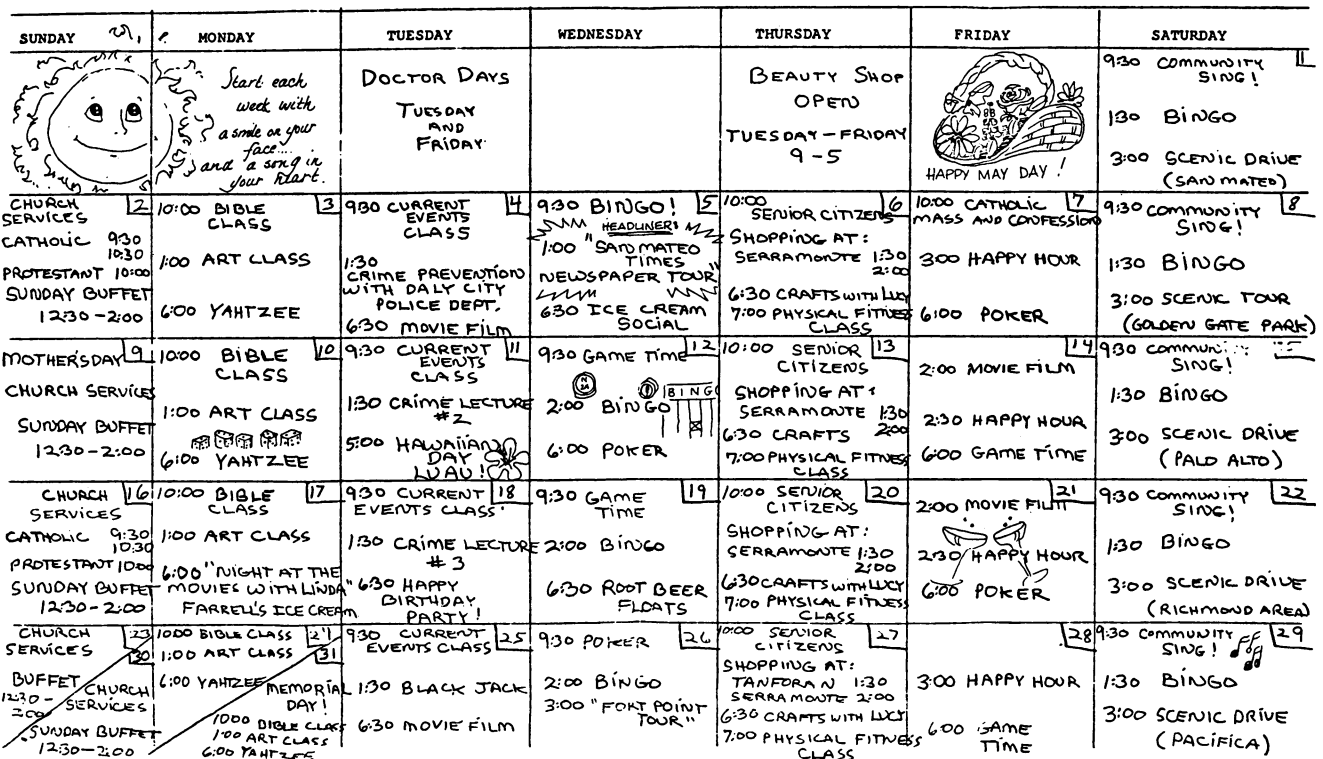 SUNDAY
MONDAY
TUESDAY
WEDNESDAY
THURSDAY
FRIDAY
SATURDAY
Start each
week with
a smile on your
face....
and a song in
your heart.
DOCTOR DAYS
TUESDAY
AND
FRIDAY
BEAUTY SHOP
OPEN
TUESDAY-FRIDAY
9-5
HAPPY MAY DAY!
1
9:30 COMMUNITY
SING!
1:30 BINGO
3:00 SCENIC DRIVE
(SAN MATEO)
2
CHURCH
SERVICES
CATHOLIC 9:30
10:30
PROTESTANT 10:00
SUNDAY BUFFET
12:30-2:00
3
10:00 BIBLE
CLASS
1:00 ART CLASS
6:00 YAHTZEE
4
9:30 CURRENT
EVENTS
CLASS
1:30
CRIME PREVENTION
WITH DALY CITY
POLICE DEPT.
6:30 MOVIE FILM
5
9:30 BINGO!
HEADLINER!
1:00 "SAN MATEO
TIMES
NEWSPAPER TOUR"
6:30 ICE CREAM
SOCIAL
6
10:00
SENIOR CITIZENS
SHOPPING AT:
SERRAMONTE 1:30
2:00
6:30 CRAFTS WITH LUCY
7:00 PHYSICAL FITNESS
CLASS
7
10:00 CATHOLIC
MASS AND CONFESSION
3:00 HAPPY HOUR
6:00 POKER
8
9:30 COMMUNITY
SING!
1:30 BINGO
3:00 SCENIC TOUR
(GOLDEN GATE PARK)
MOTHER'S DAY 9
CHURCH SERVICES
SUNDAY BUFFET
12:30-2:00
10
10:00 BIBLE
CLASS
1:00 ART CLASS
6:00 YAHTZEE
11
9:30 CURRENT
EVENTS
CLASS
1:30 CRIME LECTURE
#2
5:00 HAWAIIAN
DAY
LUAU!
12
9:30 GAME TIME
BING
2:00 BINGO
6:00 POKER
13
10:00 SENIOR
CITIZENS
SHOPPING AT:
SERRAMONTE 1:30
2:00
6:30 CRAFTS
7:00 PHYSICAL FITNESS
CLASS
14
2:00 MOVIE FILM
2:30 HAPPY HOUR
6:00 GAME TIME
9:30
SING!
1:30 BINGO
3:00 SCENIC DRIVE
(PALO ALTO)
16
CHURCH
SERVICES
CATHOLIC 9:30
10:30
PROTESTANT 10:00
SUNDAY BUFFET
12:30-2:00
17
10:00 BIBLE
CLASS
1:00 ART CLASS
6:00 "NIGHT AT THE
MOVIES WITH LINDA"
FARRELL'S ICE CREAM
18
9:30 CURRENT
EVENTS CLASS
1:30 CRIME LECTURE
#3
6:30 HAPPY
BIRTHDAY
PARTY!
19
9:30 GAME
TIME
2:00 BINGO
6:30 ROOT BEER
FLOATS
20
10:00 SENIOR
CITIZENS
SHOPPING AT:
SERRAMONTE 1:30
2:00
6:30 CRAFTS WITH LUCY
7:00 PHYSICAL FITNESS
CLASS
21
2:00 MOVIE FILM
2:30 HAPPY HOUR
6:00 POKER
22
9:30 COMMUNITY
SING!
1:30 BINGO
3:00 SCENIC DRIVE
(RICHMOND AREA)
23
CHURCH
SERVICES
BUFFET
12:30-
2:00
30
CHURCH
SERVICES
SUNDAY BUFFET
12:30-2:00
24
10:00 BIBLE CLASS
1:00 ART CLASS
6:00 YAHTZEE
31
MEMORIAL
DAY!
10:00 BIBLE CLASS
1:00 ART CLASS
6:00 YAHTZEE
25
9:30 CURRENT
EVENTS CLASS
1:30 BLACK JACK
6:30 MOVIE FILM
26
9:30 POKER
2:00 BINGO
3:00 "FORT POINT
TOUR"
27
10:00 SENIOR
CITIZENS
SHOPPING AT:
TANFORAN 1:30
SERRAMONTE 2:00
6:30 CRAFTS WITH LUCY
7:00 PHYSICAL FITNESS
CLASS
28
3:00 HAPPY HOUR
6:00 GAME
TIME
29
9:30 COMMUNITY
SING!
1:30 BINGO
3:00 SCENIC DRIVE
(PACIFICA)